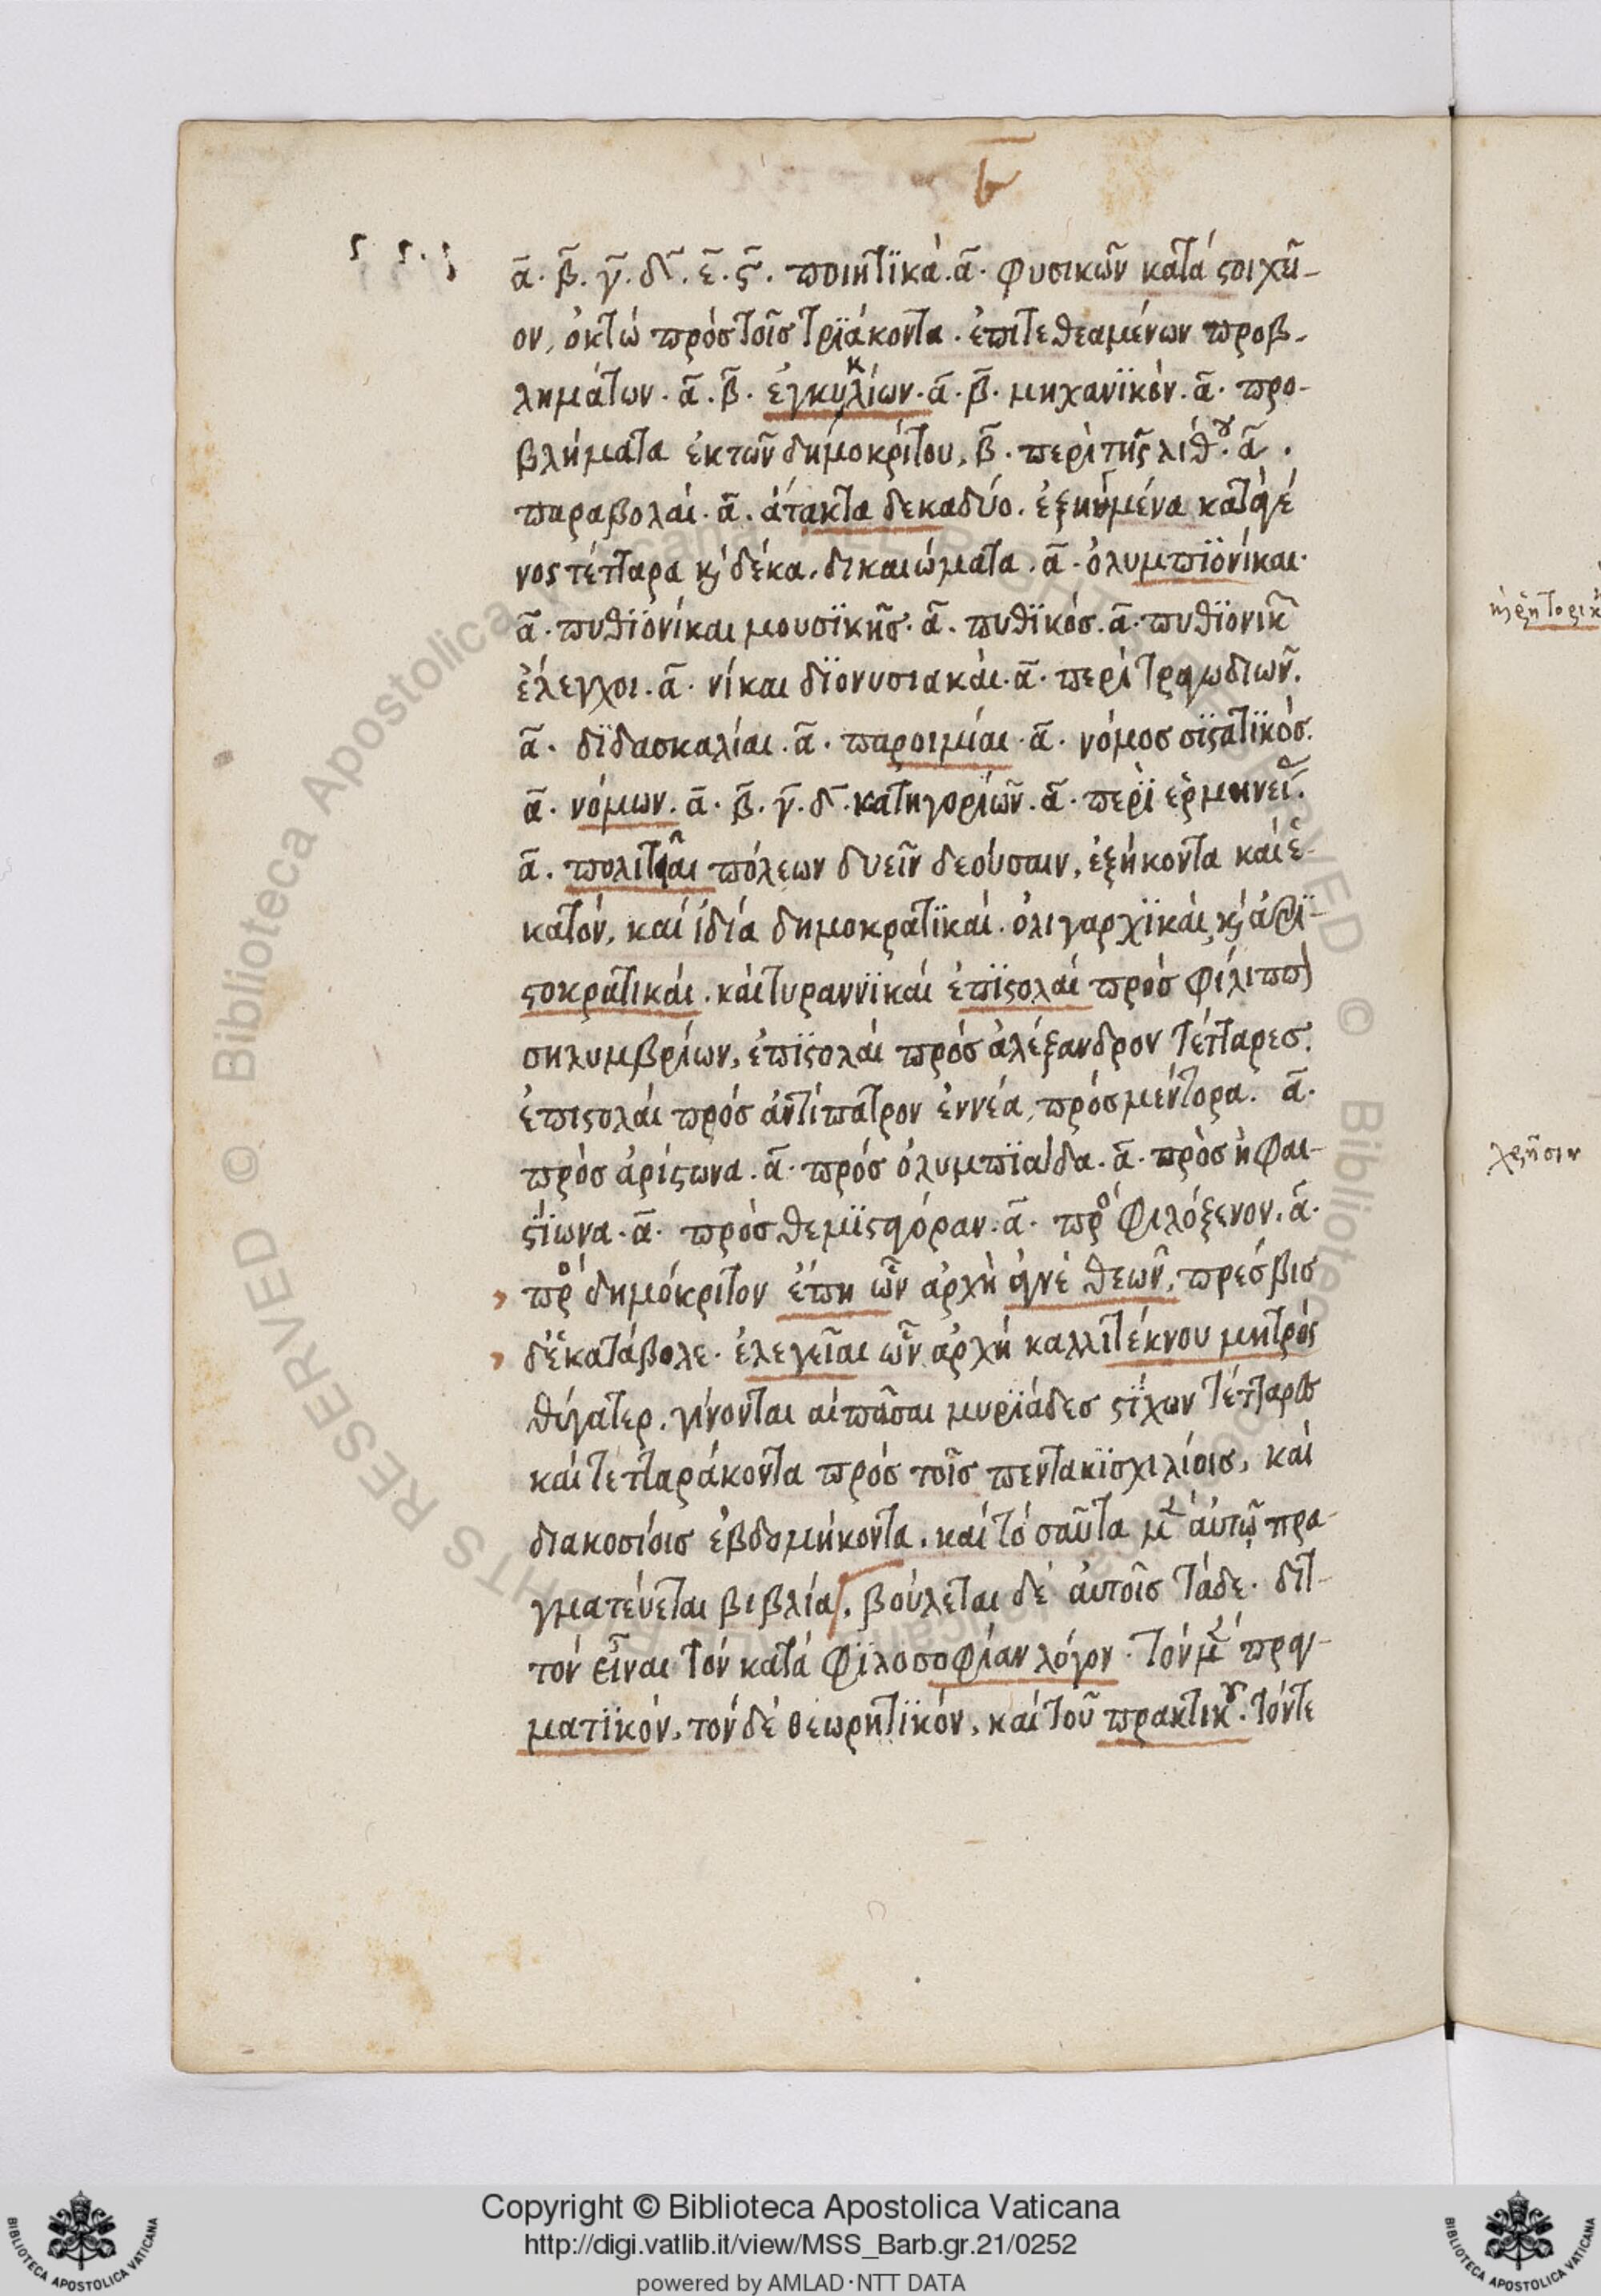 ς ς. ς
α̅. β̅. γ̅. δ̅. ε̅. ς̅. ποιητϊκὰ. α̅. φυσικῶν κατά ϛοιχῆ-
ον, ὀκτώ πρόσ τοῖσ τρϊάκοντα. ἐπιτεθεαμένων προβ-
λημάτων. α̅. β̅. ἐγκυκλίων. α̅. β̅. μηχανϊκόν. α̅. προ-
βλήματα ἐκτῶν δημοκρίτου, β̅. περὶ τῆς λίθου. α̅.
παραβολαί. α̅. ἀτακτα δεκαδύο. ἐξηυμένα καταγέ
νος τέτταρα κ δέκα. δικαιώματα. α̅. ὀλυμπϊόνίκαι.
α̅. πυθϊόνίκαι μουσϊκῆσ. α̅. πυθϊκόσ. α̅. πυθϊονικ
ἐλεγχοι. α̅. νίκαι δϊονυσιακάι. α̅. περὶ τραγωδιῶν.
α̅. δϊδασκαλίαι. α̅. παροιμίαι. α̅. νόμοσ σϊϛατϊκόσ.
α̅. νόμων. α̅. β̅. γ̅. δ̅. κατηγορίῶν. α̅. περὶ ἑρμηνεί.
α̅. πολιτῖαι πόλεων δυεῖν δεόυσαιν, ἑξήκοντα καί ἑ-
κατόν, καί ἰδία δημοκρατϊκαί. ὀλιγαρχϊκάι, κ ἀρϊ-
ϛοκρατικάι. κάι τυραννϊκαί ἐπϊϛολαί πρόσ φίλιππ
σηλυμβρίων, ἐπϊϛολάι πρόσ ἀλέξανδρον τέτταρεσ.
ἐπιϛολάι πρόσ ἀντίπατρον ἐννέα, πρόσ μέντορα. α̅.
πρόσ ἀρίϛωνα. α̅. πρόσ ὀλυμπϊαίδα. α̅. πρὸσ ἡφαι-
ϛίωνα. α̅. πρόσ θεμϊϛαγόραν. α̅. πρό φιλόξενον. α̅.
πρό δημόκριτον ἐπη ὧν ἀρχὴ ἁγνέ θεῶν, πρέσβισ
δἑκατάβολε. ἐλεγεῖαι ὧν ἀρχή καλλιτέκνου μητρός
θύγατερ. γίνονται αἱπᾶσαι μυρϊάδεσ ϛίχων τέτταρεσ
καί τετταράκοντα πρόσ τοῖσ πεντακϊσχιλίοισ, καί
διακοσίοισ ἑβδομήκοντα. καί τό σαῦτα μ αὐτῷ πρα-
γματεύεται βιβλία, βούλεται δέ ἀυτοῖσ τάδε. διτ-
τόν εἶναι τόν κατά φϊλοσοφίαν λόγον. τόν μ πραγ-
ματϊκόν, τόνδέ θεωρητϊκόν, καί τοῦ πρακτικου. τόντε
λρῆσιν
Copyright © Biblioteca Apostolica Vaticana
http://digi.vatlib.it/view/MSS_Barb.gr.21/0252
powered by AMLAD·NTT DATA